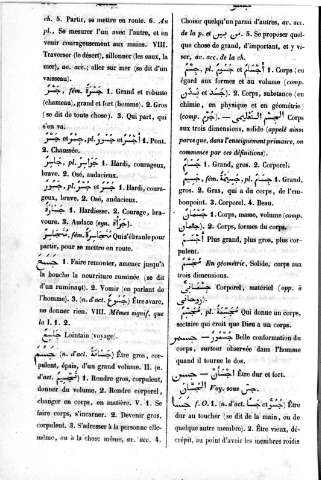 ch. 5. Partir, se mettre en route. 6. Au
pl. Se mesurer l'un avec l'autre, et en
venir courageusement aux mains. VIII.
Traverser (le désert), sillonner (les eaux, la
mer), av. acc.; aller sur mer (se dit d'un
vaisseau).
جَسْر fém. جَسْرَة 1. Grand et robuste
(chameau), grand et fort (homme). 2. Gros
(se dit de toute chose). 3. Qui part, qui
s'en va.
جِسْر pl. 1. Pont.
2. Chaussée.
جَاسِر pl. 1. Hardi, courageux,
brave. 2. Osé, audacieux.
جَسُور pl. 1. Hardi, coura-
geux, brave. 2. Osé, audacieux.
جَسَارَة 1. Hardiesse. 2. Courage, bra-
voure. 3. Audace
Qui s'ébranle pour
partir, pour se mettre en route.
1. Faire remonter, amener jusqu'à
la bouche la nourriture ruminée (se dit
d'un ruminant). 2. Vomir (en parlant de
l'homme). 3. (n. d'act. جُسُوع) Être avare,
ne donner rien. VIII. Mêmes signif. que
la I. 1. 2.
Lointain (voyage).
جَسُمَ (n. d'act. جَسَامَة) Être gros, cor-
pulent, épais, d'un grand volume. II. (n.
d'act. تَجْسِيم) 1. Rendre gros, corpulent,
donner du volume. 2. Rendre corporel,
changer en corps, en matière. V. 1. Se
faire corps, s'incarner. 2. Devenir gros,
corpulent. 3. S'adresser à la personne elle-
même, ou à la chose même, av. acc. 4.
Choisir quelqu'un parmi d'autres, av. acc.
de la p. et من بين. 5. Se proposer quel-
que chose de grand, d'important, et y vi-
ser, av. acc. de la ch.
جِسْم pl. أَجْسَام et جُسُوم 1. Corps (eu
égard aux formes et au volume) (comp.
جَسَد et بَدَن). 2. Corps, substance (en
chimie, en physique et en géométrie)
(comp. جِرْم). — الجسم التعليمي Corps
aux trois dimensions, solide (appelé ainsi
parceque, dans l'enseignement primaire, on
commence par ces définitions).
1. Grand, gros. 2. Corporel.
جَسِيم fém. جَسِيمَة pl. جِسَام 1. Grand,
gros. 2. Gras, qui a du corps, de l'em-
bonpoint. 3. Corporel. 4. Beau.
جُسْمَان 1. Corps, masse, volume (comp.
جثمان). 2. Corps, formes du corps.
أَجْسَم Plus grand, plus gros, plus cor-
pulent.
En géométrie, Solide, corps aux
trois dimensions.
جُسْمَانِيّ Corporel, matériel (opp. à
روحاني).
مُجَسِّمَة pl. Qui donne un corps,
sectaire qui croit que Dieu a un corps.
جسور — جسمر Belle conformation du
corps, surtout observée dans l'homme
quand il tourne le dos.
جسن — اجسأن Être dur et fort.
الجسان Voy. sous جس.
جَسَا f. O. 1. (n. d'act. جُسُوّ et جَسًا) Être
dur au toucher (se dit de la main, ou de
quelque autre membre). 2. Être vieux, dé-
crépit, au point d'avoir les membres roidis